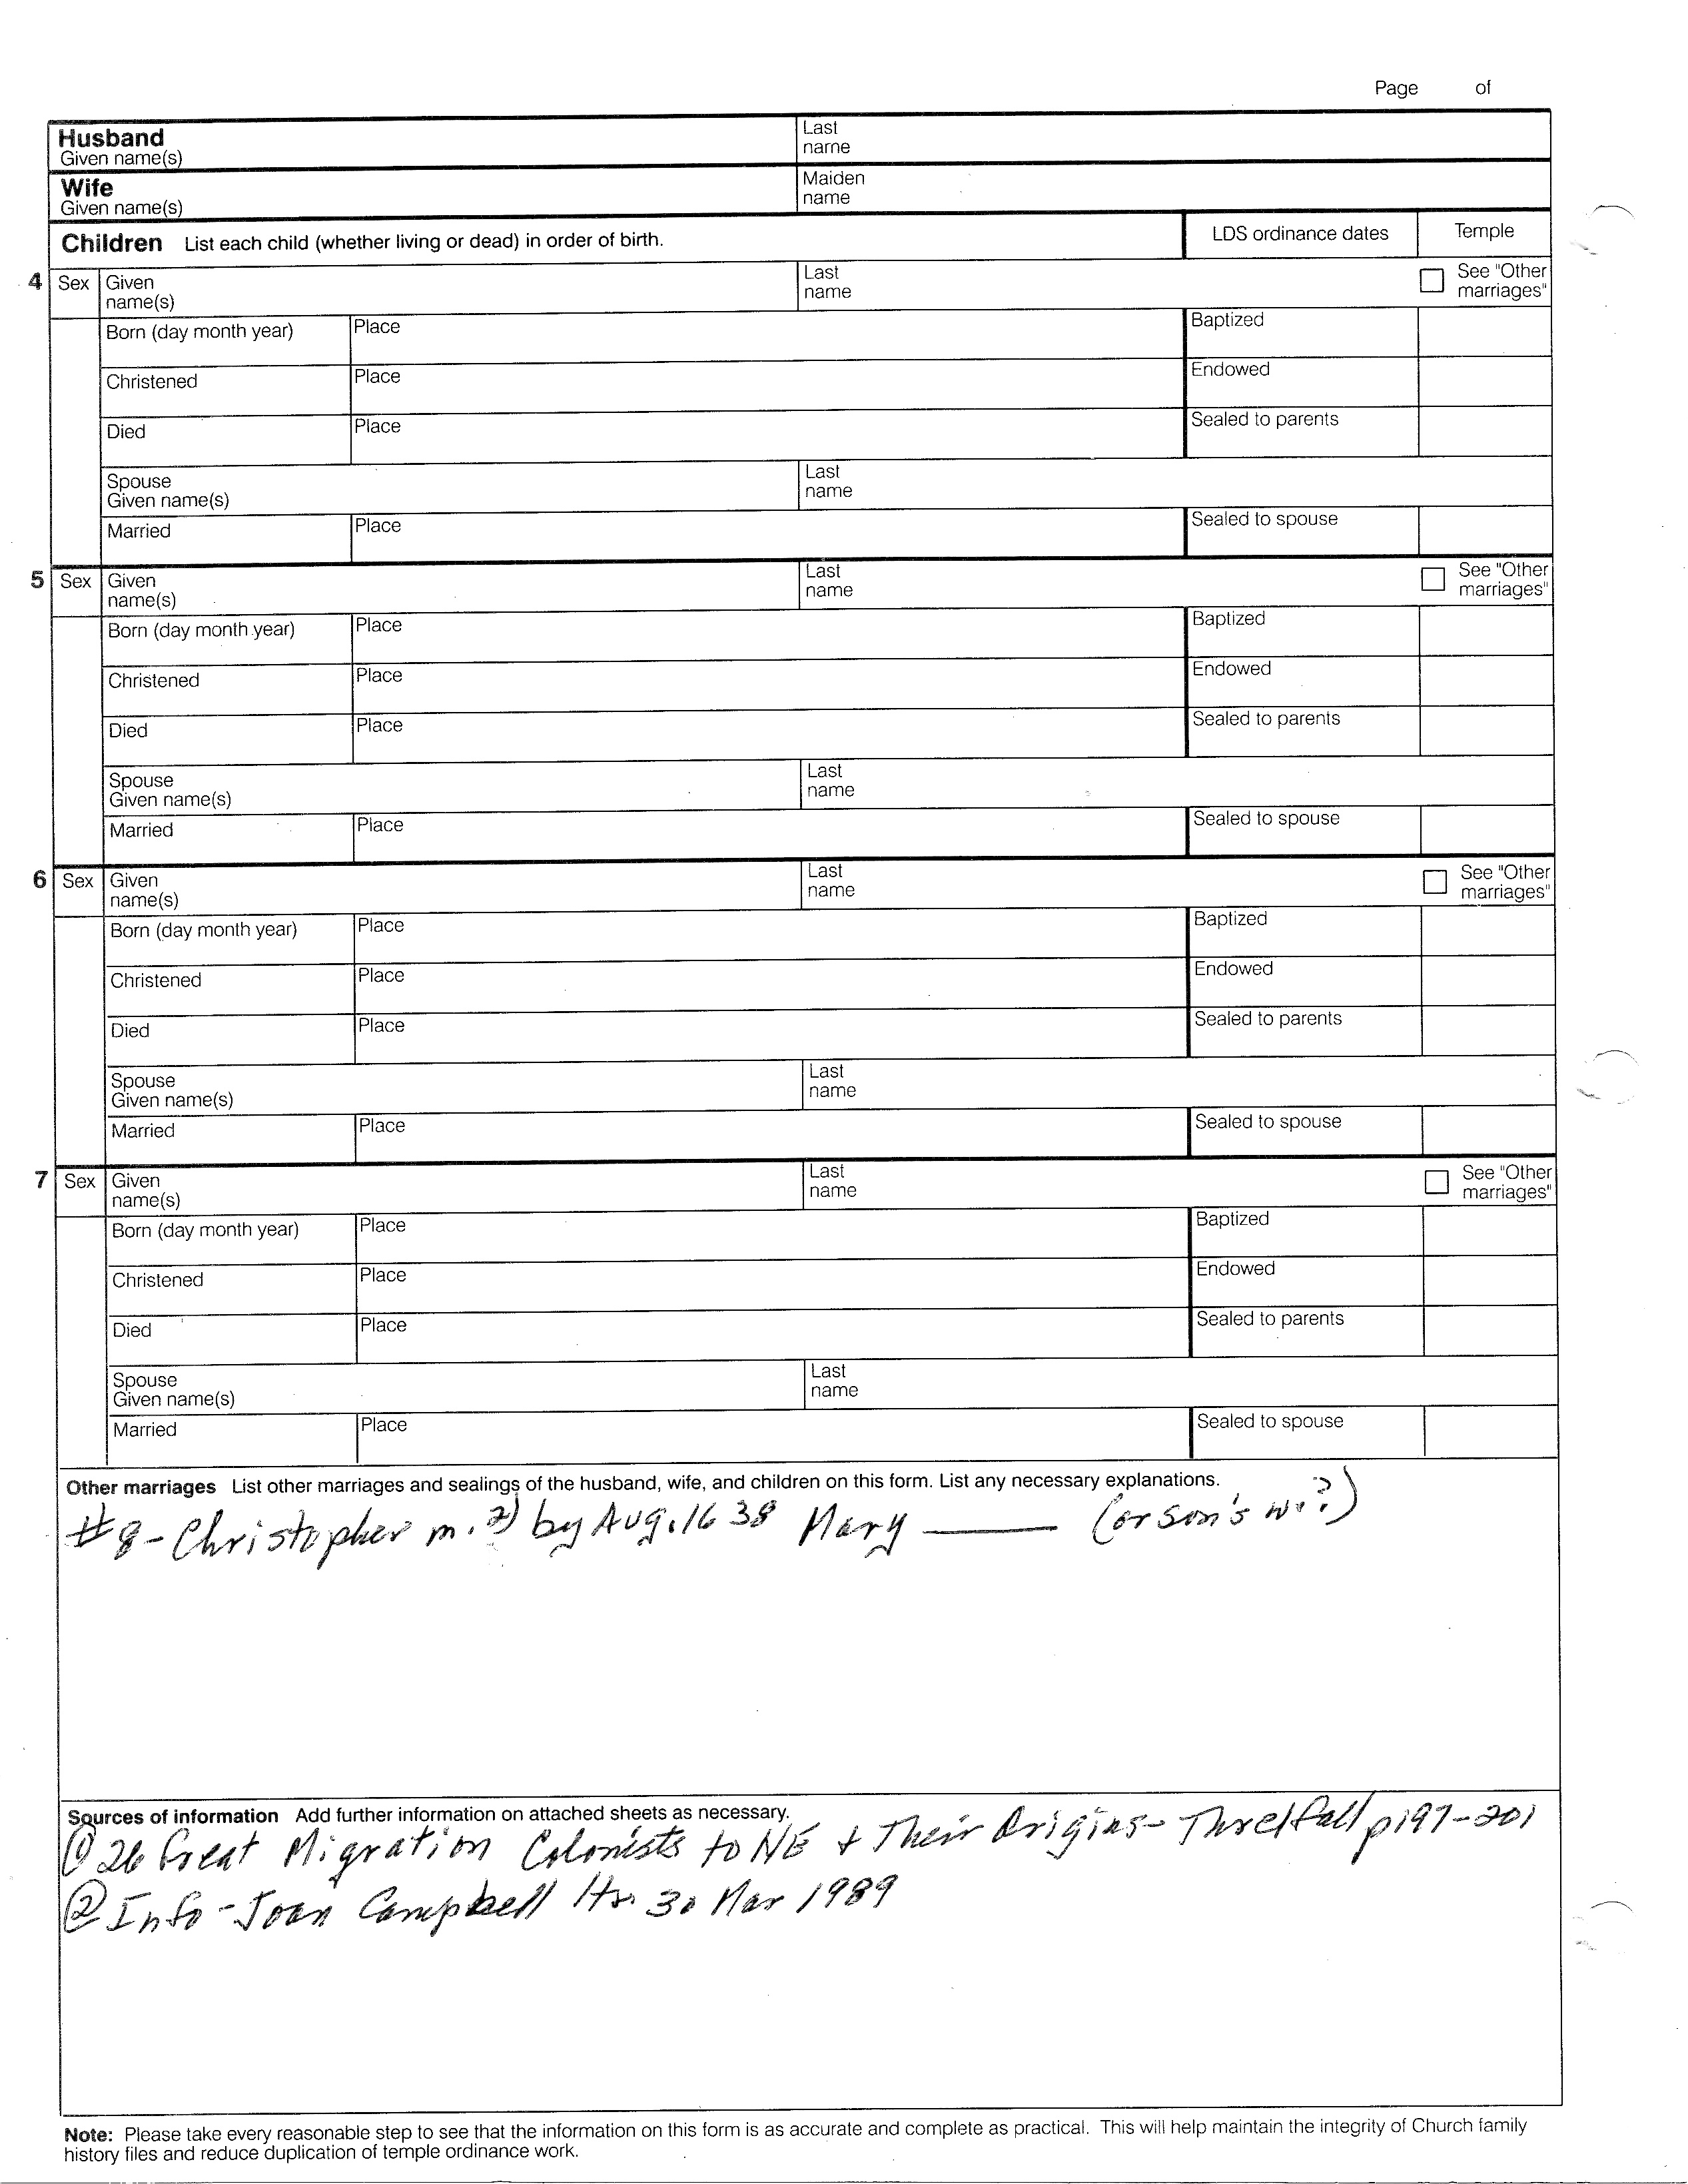 Page of
Husband
Given name(s)
Last
name
Wife
Given name(s)
Maiden
name
Children List each child (whether living or dead) in order of birth.
LDS ordinance dates
Temple
4 Sex Given
name(s)
Last
name
See "Other
marriages"
Born (day month year) Place Baptized
Christened Place Endowed
Died Place Sealed to parents
Spouse
Given name(s)
Last
name
Married Place Sealed to spouse
5 Sex Given
name(s)
Last
name
See "Other
marriages"
Born (day month year) Place Baptized
Christened Place Endowed
Died Place Sealed to parents
Spouse
Given name(s)
Last
name
Married Place Sealed to spouse
6 Sex Given
name(s)
Last
name
See "Other
marriages"
Born (day month year) Place Baptized
Christened Place Endowed
Died Place Sealed to parents
Spouse
Given name(s)
Last
name
Married Place Sealed to spouse
7 Sex Given
name(s)
Last
name
See "Other
marriages"
Born (day month year) Place Baptized
Christened Place Endowed
Died Place Sealed to parents
Spouse
Given name(s)
Last
name
Married Place Sealed to spouse
Other marriages List other marriages and sealings of the husband, wife, and children on this form. List any necessary explanations.
#8 - Christopher m. 2) by Aug. 1638 Mary ——— (or son's w.?)
Sources of information Add further information on attached sheets as necessary.
① 26 Great Migration Colonists to NE + Their Origins - Threlfall p197-201
② Info - Joan Campbell 30 Mar 1989
Note: Please take every reasonable step to see that the information on this form is as accurate and complete as practical. This will help maintain the integrity of Church family
history files and reduce duplication of temple ordinance work.